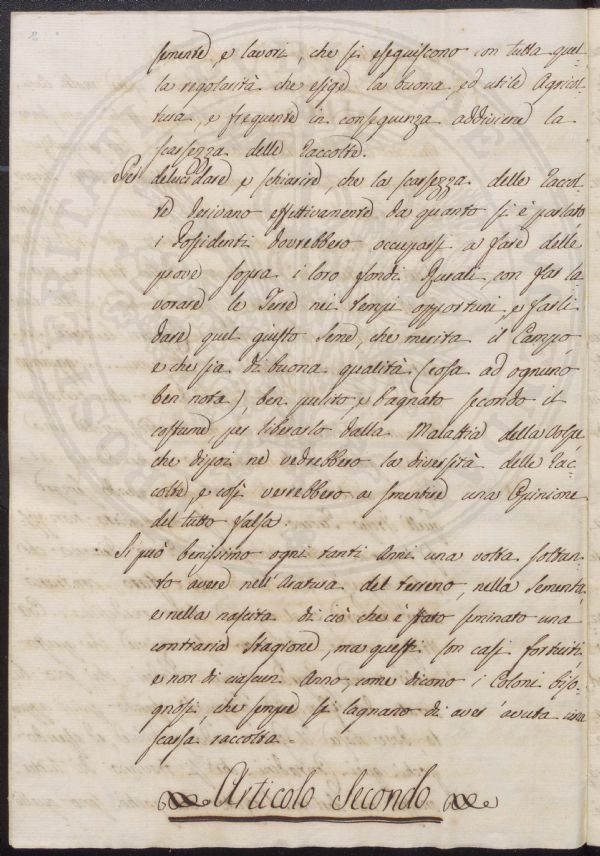 2
semente, e lavori, che si eseguiscono con tutta quel-
la regolarità che esige la buona, ed utile Agricol-
tura, e frequente in conseguenza addiviene la
scarsezza delle raccolte.
Per delucidare e schiarire, che la scarsezza delle Raccol-
te derivano effettivamente da quanto si è parlato
i Possidenti dovrebbero occuparsi a fare delle
prove sopra i loro fondi Rurali, con far la
vorare le Terre nei tempi opportuni, e farli
dare quel giusto seme, che merita il Campo
e che sia di buona qualità (cosa ad ognuno
ben nota), ben pulito e bagnato secondo il
costume per liberarlo dalla Malattia della Volpe
che dipoi ne vedrebbero la diversità delle rac-
colte, e così verrebbero a smentire una Opinione
del tutto falsa.
Si può benissimo ogni tanti Anni una volta soltan-
to avere nell'Aratura del terreno, nella Sementa,
e nella nascita di ciò che è stato seminato una
contraria Stagione, ma questi son casi fortuiti,
e non di ciascun Anno, come dicono i Coloni biso-
gnosi, che sempre si lagnano di aver avuta una
scarsa raccolta.
Articolo Secondo